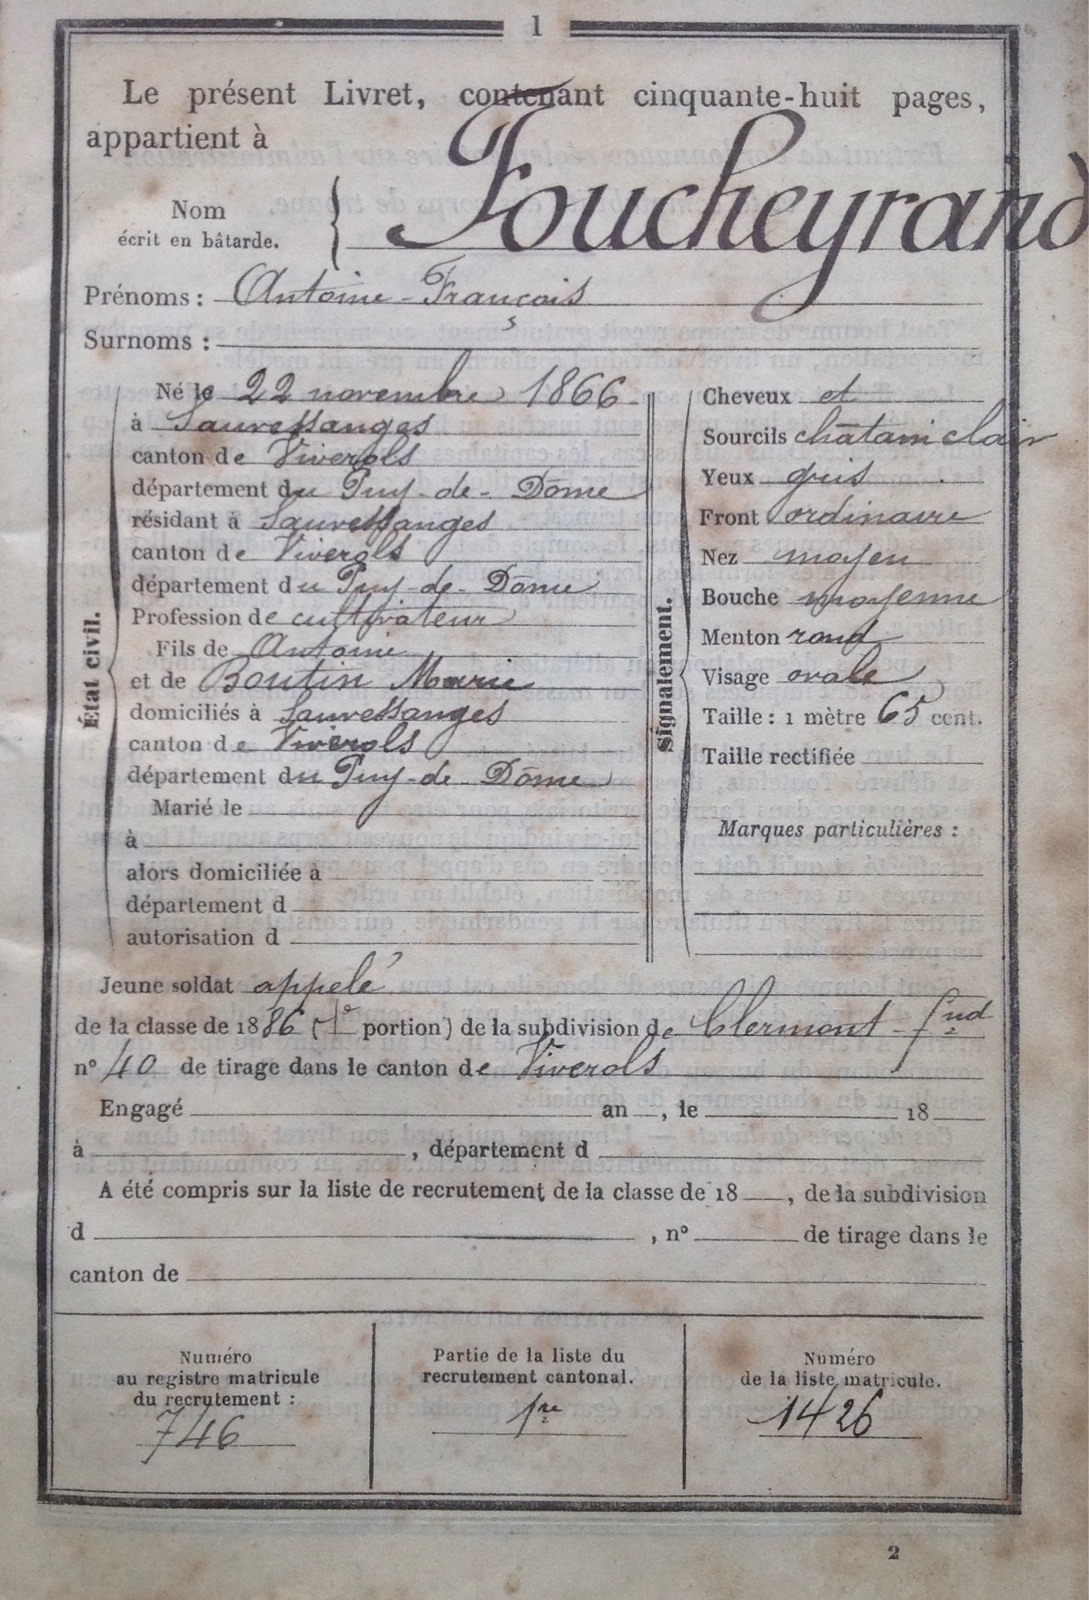 1
Le présent Livret, contenant cinquante-huit pages,
appartient à
Nom
écrit en bâtarde.
Foucheyrand
Prénoms : Antoine-François
Surnoms :
État civil.
Né le 22 novembre 1866
à Sauvessanges
canton de Viverols
département du Puy-de-Dôme
résidant à Sauvessanges
canton de Viverols
département du Puy-de-Dôme
Profession de cultivateur
Fils de Antoine
et de Boutin Marie
domiciliés à Sauvessanges
canton de Viverols
département du Puy-de-Dôme
Marié le
à
alors domiciliée à
département d
autorisation d
Signalement.
Cheveux et
Sourcils châtain clair
Yeux gris
Front ordinaire
Nez moyen
Bouche moyenne
Menton rond
Visage ovale
Taille : 1 mètre 65 cent.
Taille rectifiée
Marques particulières :
Jeune soldat appelé
de la classe de 1886 (1e portion) de la subdivision de Clermont-fnd
n° 40 de tirage dans le canton de Viverols
Engagé an , le 18
à , département d
A été compris sur la liste de recrutement de la classe de 18 , de la subdivision
d , n° de tirage dans le
canton de
Numéro
au registre matricule
du recrutement :
746
Partie de la liste du
recrutement cantonal.
1re
Numéro
de la liste matricule.
1426
2